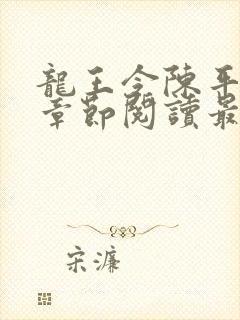 龍王令陳平
章節閱讀最
宋濂